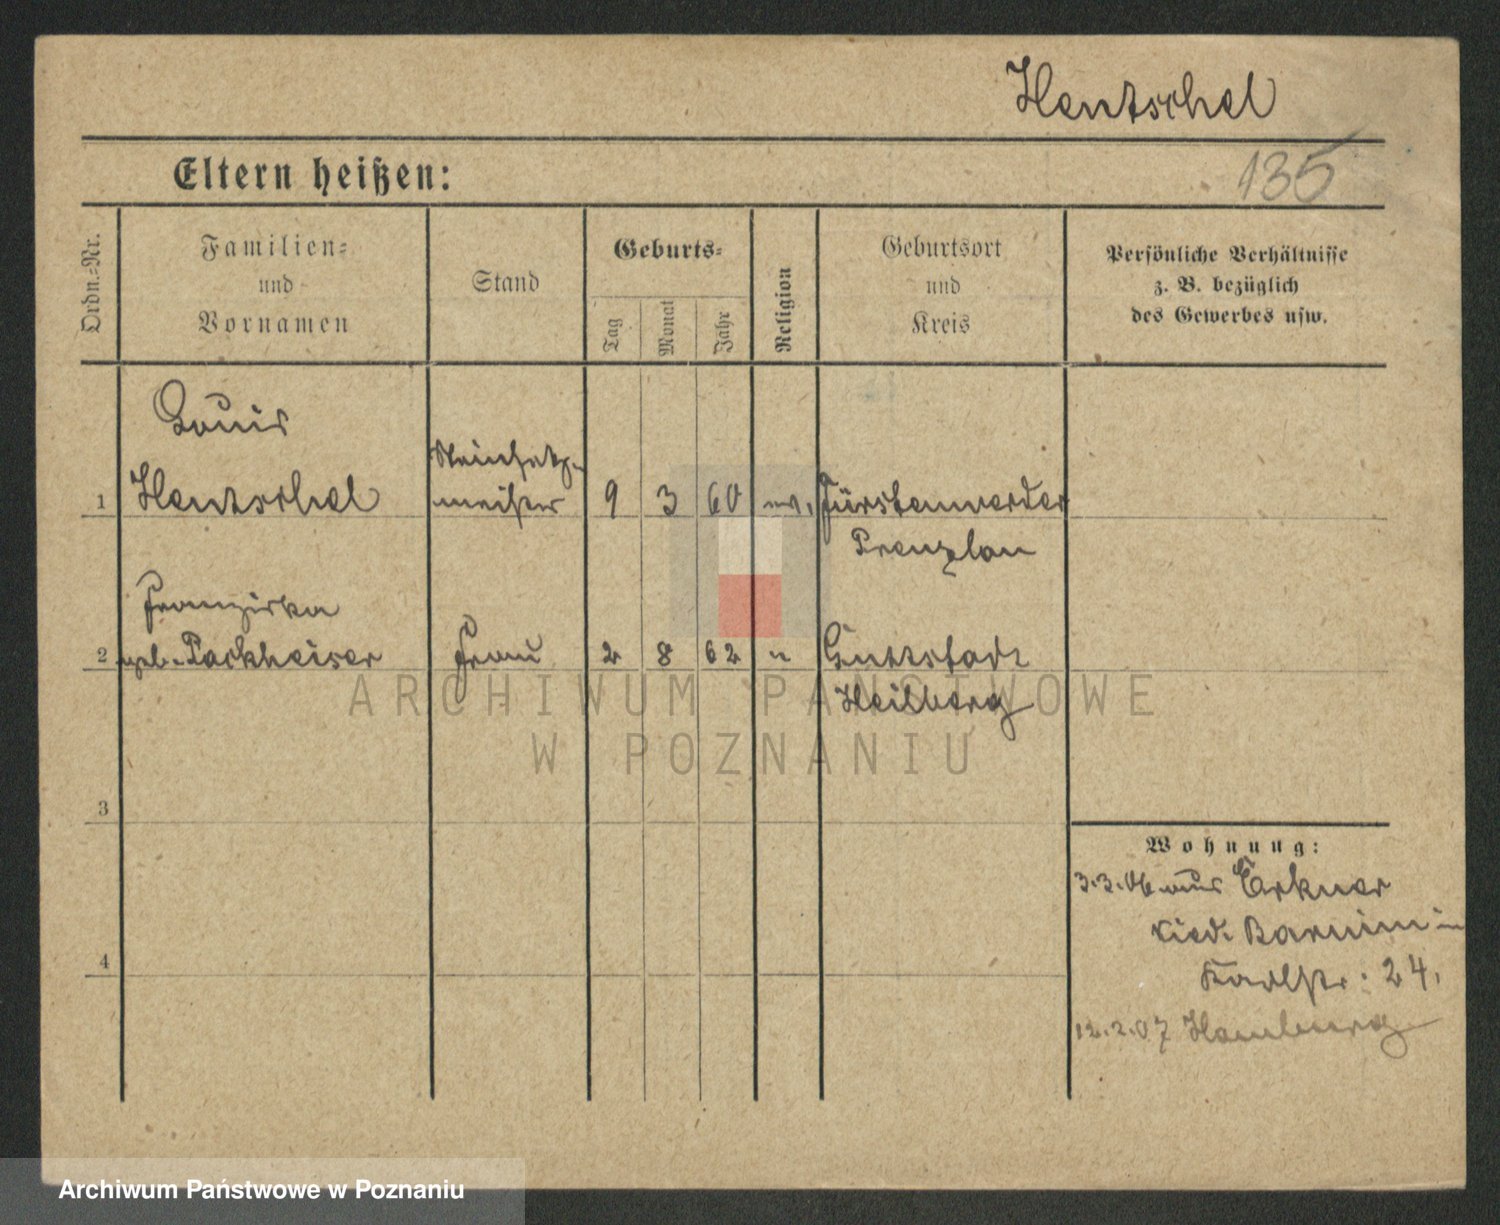 Hentschel
Eltern heißen:
135
Ordn.=Nr.
Familien=
und
Vornamen
Stand
Geburts=
Tag
Monat
Jahr
Religion
Geburtsort
und
Kreis
Persönliche Verhältnisse
z. B. bezüglich
des Gewerbes usw.
Louis
Steinsetz-
1 Hentschel meister 9 3 60 ev. Fürstenwerder
Prenzlau
Franziska
2 geb. Packheiser Frau 2 8 62 " Guttstadt
Heilberg
ARCHIWUM PAŃSTWOWE
W POZNANIU
3
Wohnung:
3.3.06 aus Erkner
Nied. Barnim in
4
Karlstr. 24.
12.2.07 Hamburg
Archiwum Państwowe w Poznaniu